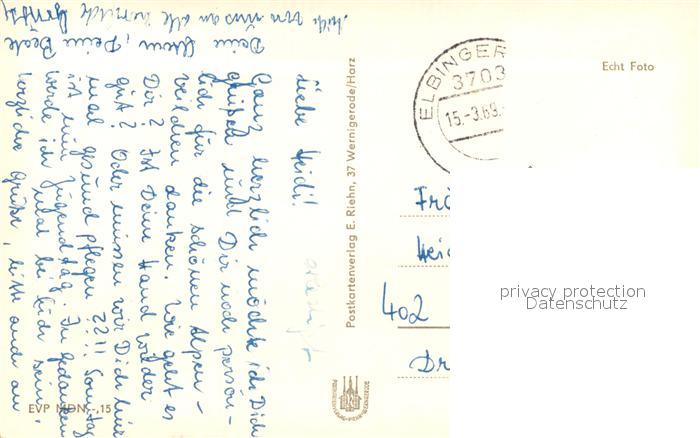 Liebe Heidi!
Ganz herzlich möchte ich Dich
grüßen und Dir noch persön-
lich für die schönen Alpen-
veilchen danken. Wie geht es
Dir? Ist Deine Hand wieder
gut? Oder müssen wir Dich hier
mal gesund pflegen ??!! Sonntag
ist nun Jugendtag. In Gedanken
werde ich mal bei Euch sein.
Herzliche Grüße, bitte auch an
Deine Eltern, Deine Beate
von uns an alle
EVP MDN -,15
Postkartenverlag E. Riehn, 37 Wernigerode/Harz
ELBINGER
3703
15.-3.69.-
Echt Foto
Frö
Heid
402
Dr
privacy protection
Datenschutz